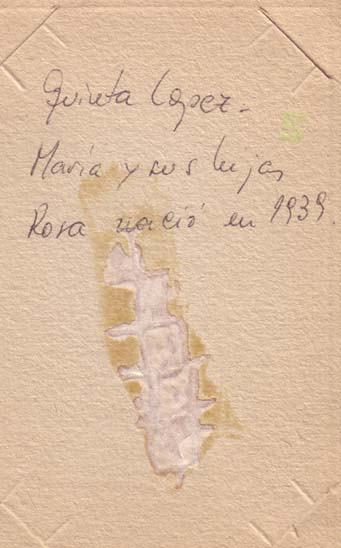 Quinta Lopez.
María y sus hijas
Rosa nació en 1939.